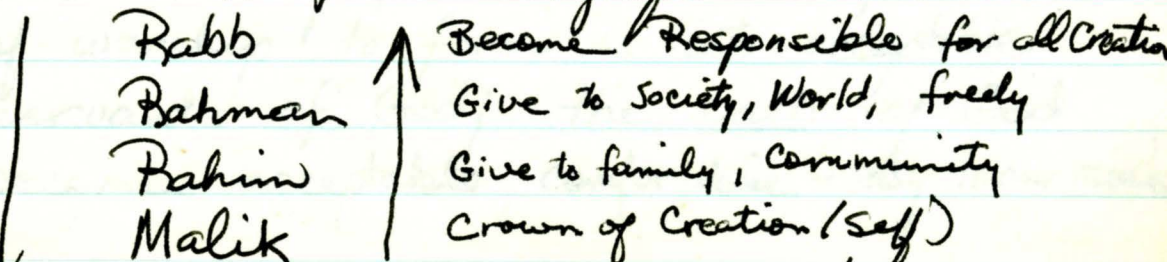 Rabb Become Responsible for all Creation
Rahman Give to Society, World, freely
Rahim Give to family, community
Malik Crown of Creation (Self)